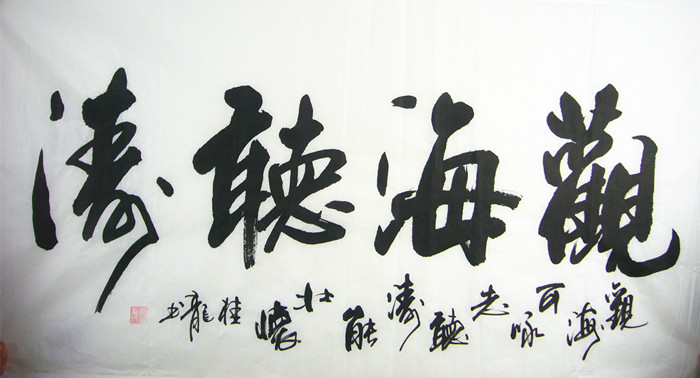 觀海聽濤
觀海可咏志聽濤能壯懷桂龍書